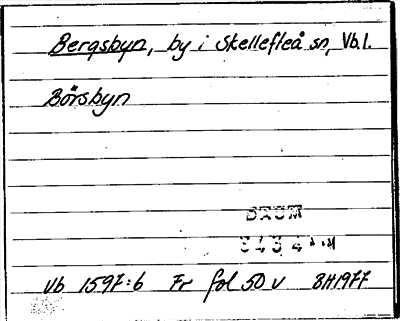 Bergsbyn, by i Skellefteå sn, Vb.l.
Börsbyn
DAUM
3434
Vb 1597:6 Fr fol 50 v BH1977